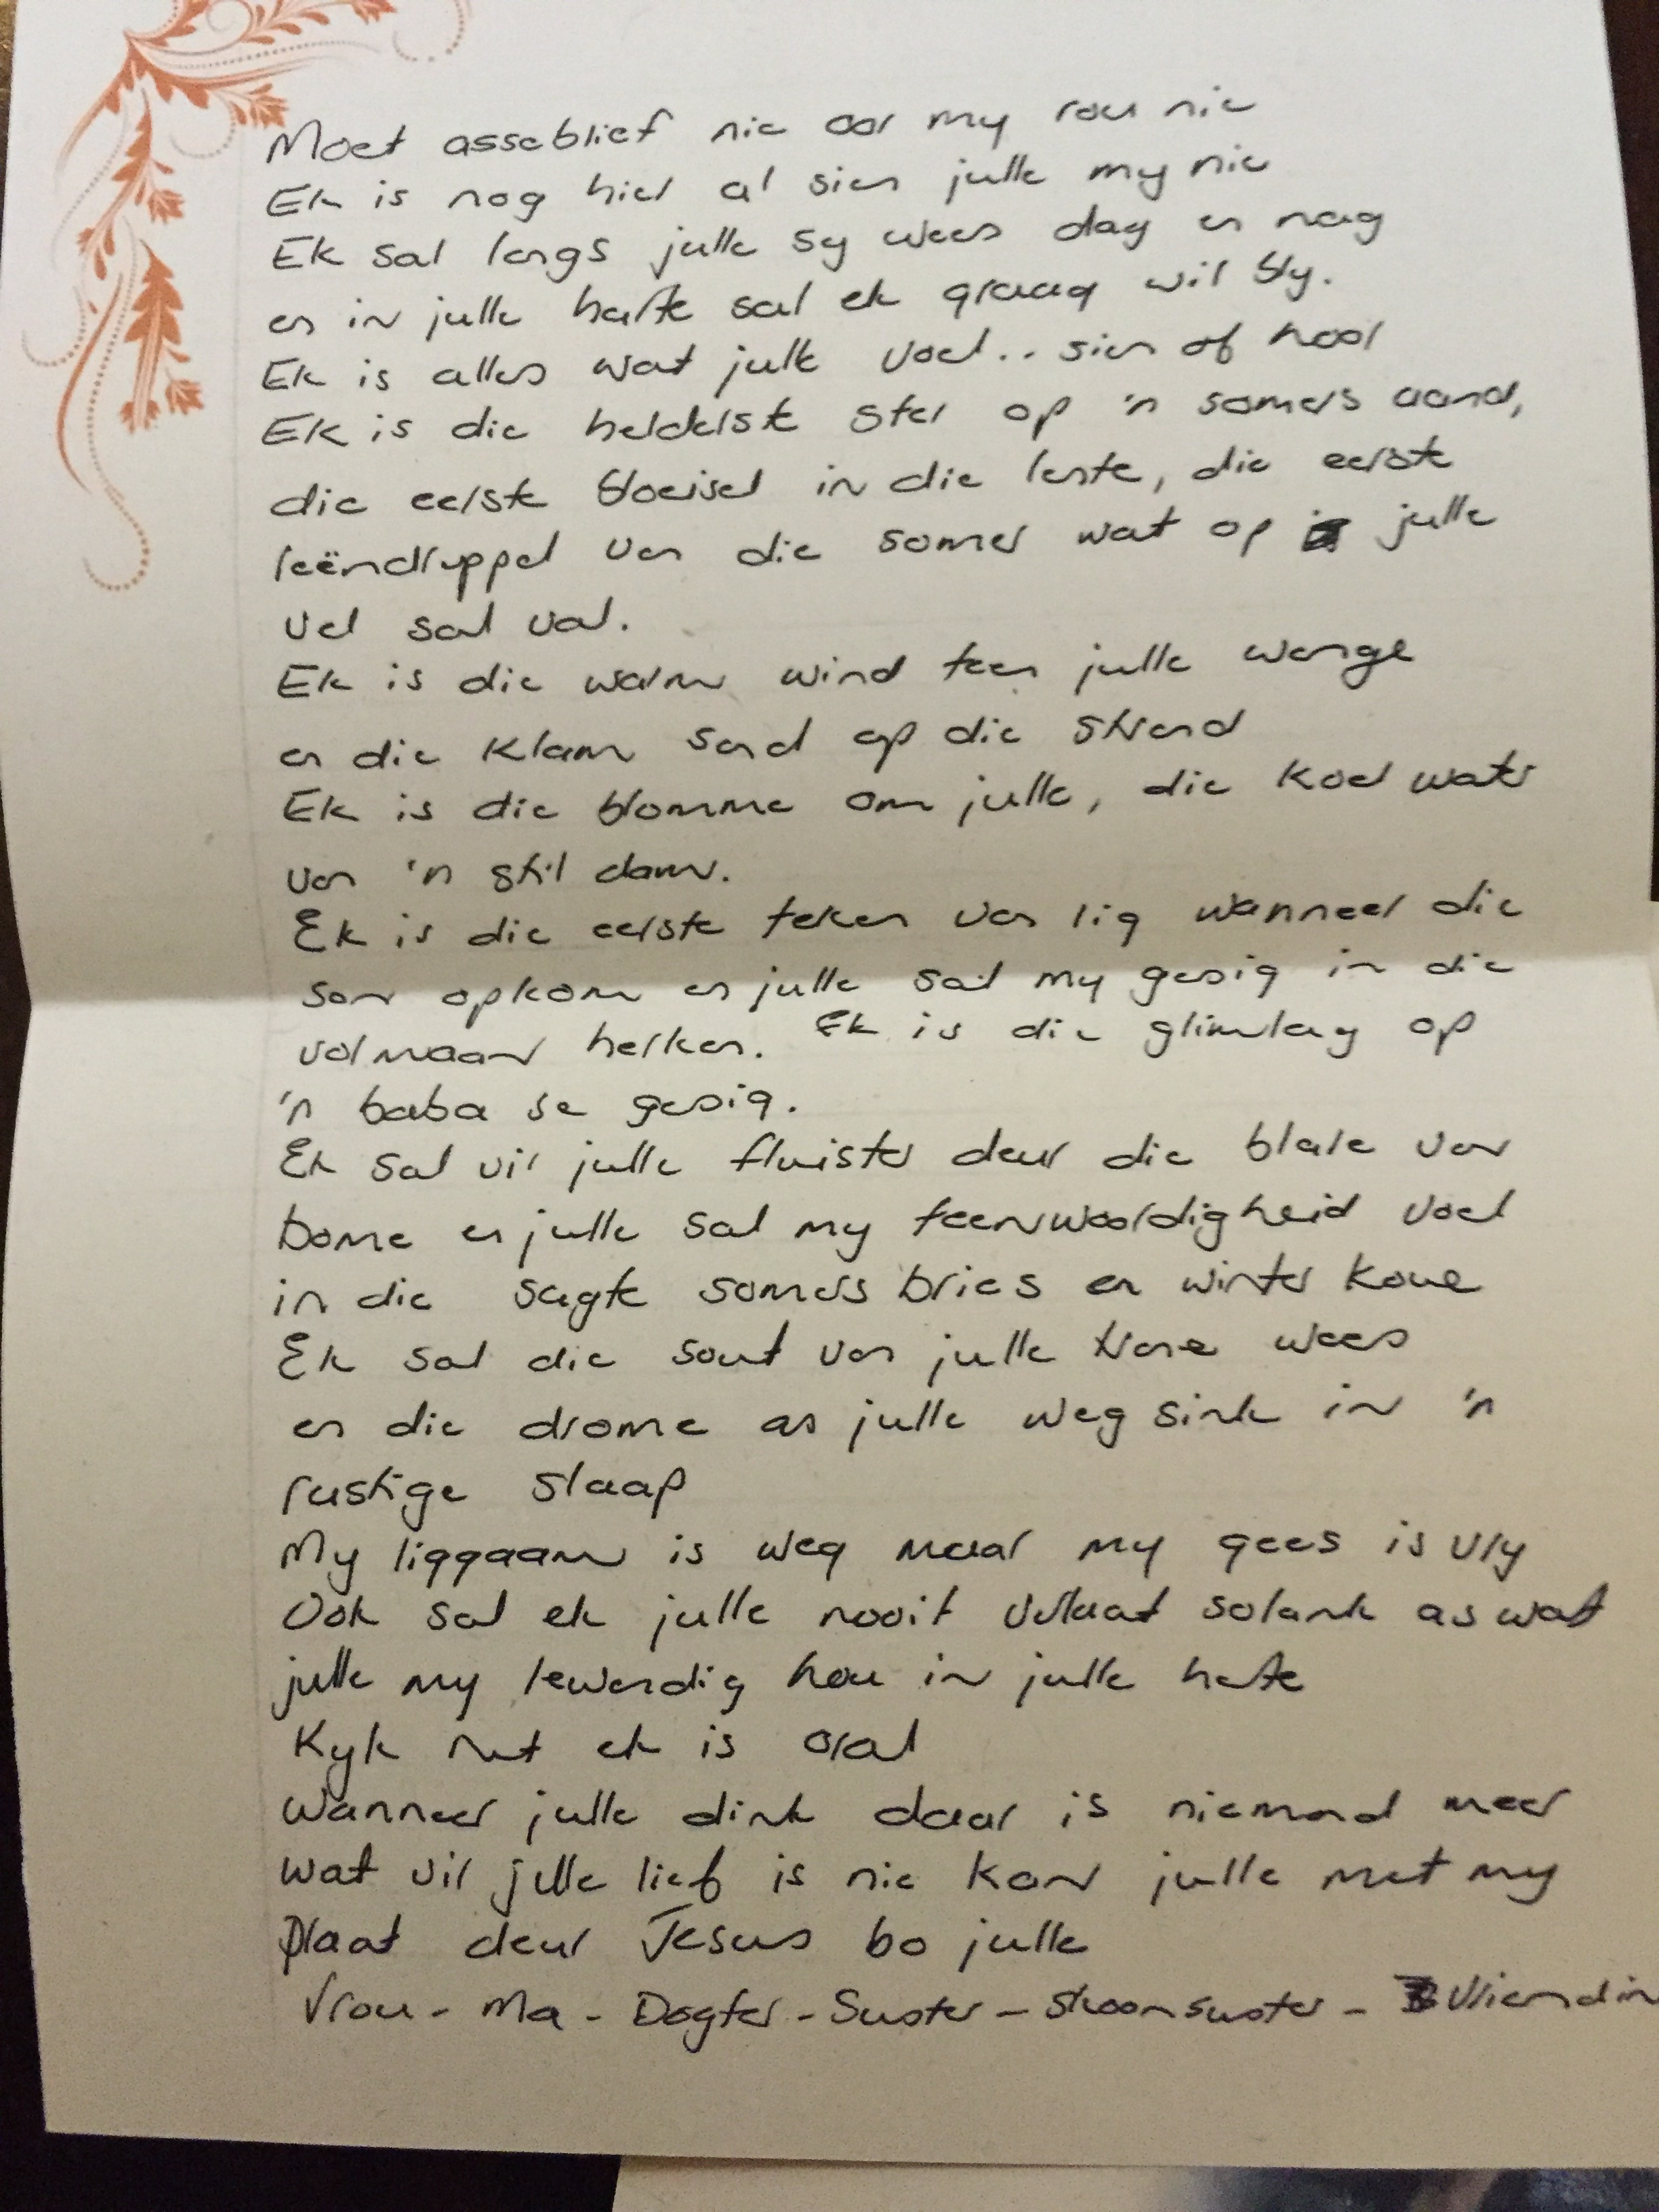 Moet asseblief nie oor my rou nie
Ek is nog hier al sien julle my nie
Ek sal langs julle sy wees dag en nag
en in julle harte sal ek graag wil bly.
Ek is alles wat julle voel.. sien of hoor
Ek is die helderste ster op 'n somers aand,
die eerste bloeisel in die lente, die eerste
reëndruppel van die somer wat op julle
vel sal val.
Ek is die warm wind teen julle wange
en die klam sand op die strand
Ek is die blomme om julle, die koel water
van 'n stil dam.
Ek is die eerste teken van lig wanneer die
son opkom en julle sal my gesig in die
volmaan herken. Ek is die glimlag op
'n baba se gesig.
Ek sal vir julle fluister deur die blare van
bome en julle sal my teenwoordigheid voel
in die sagte somers bries en winter koue
Ek sal die sout van julle trane wees
en die drome as julle weg sink in 'n
rustige slaap
My liggaam is weg maar my gees is vry
Ook sal ek julle nooit verlaat solank as wat
julle my lewendig hou in julle harte
Kyk net ek is oral
Wanneer julle dink daar is niemand meer
wat vir julle lief is nie kan julle met my
praat deur Jesus bo julle
Vrou - Ma - Dogter - Suster - Skoonsuster - Vriendin